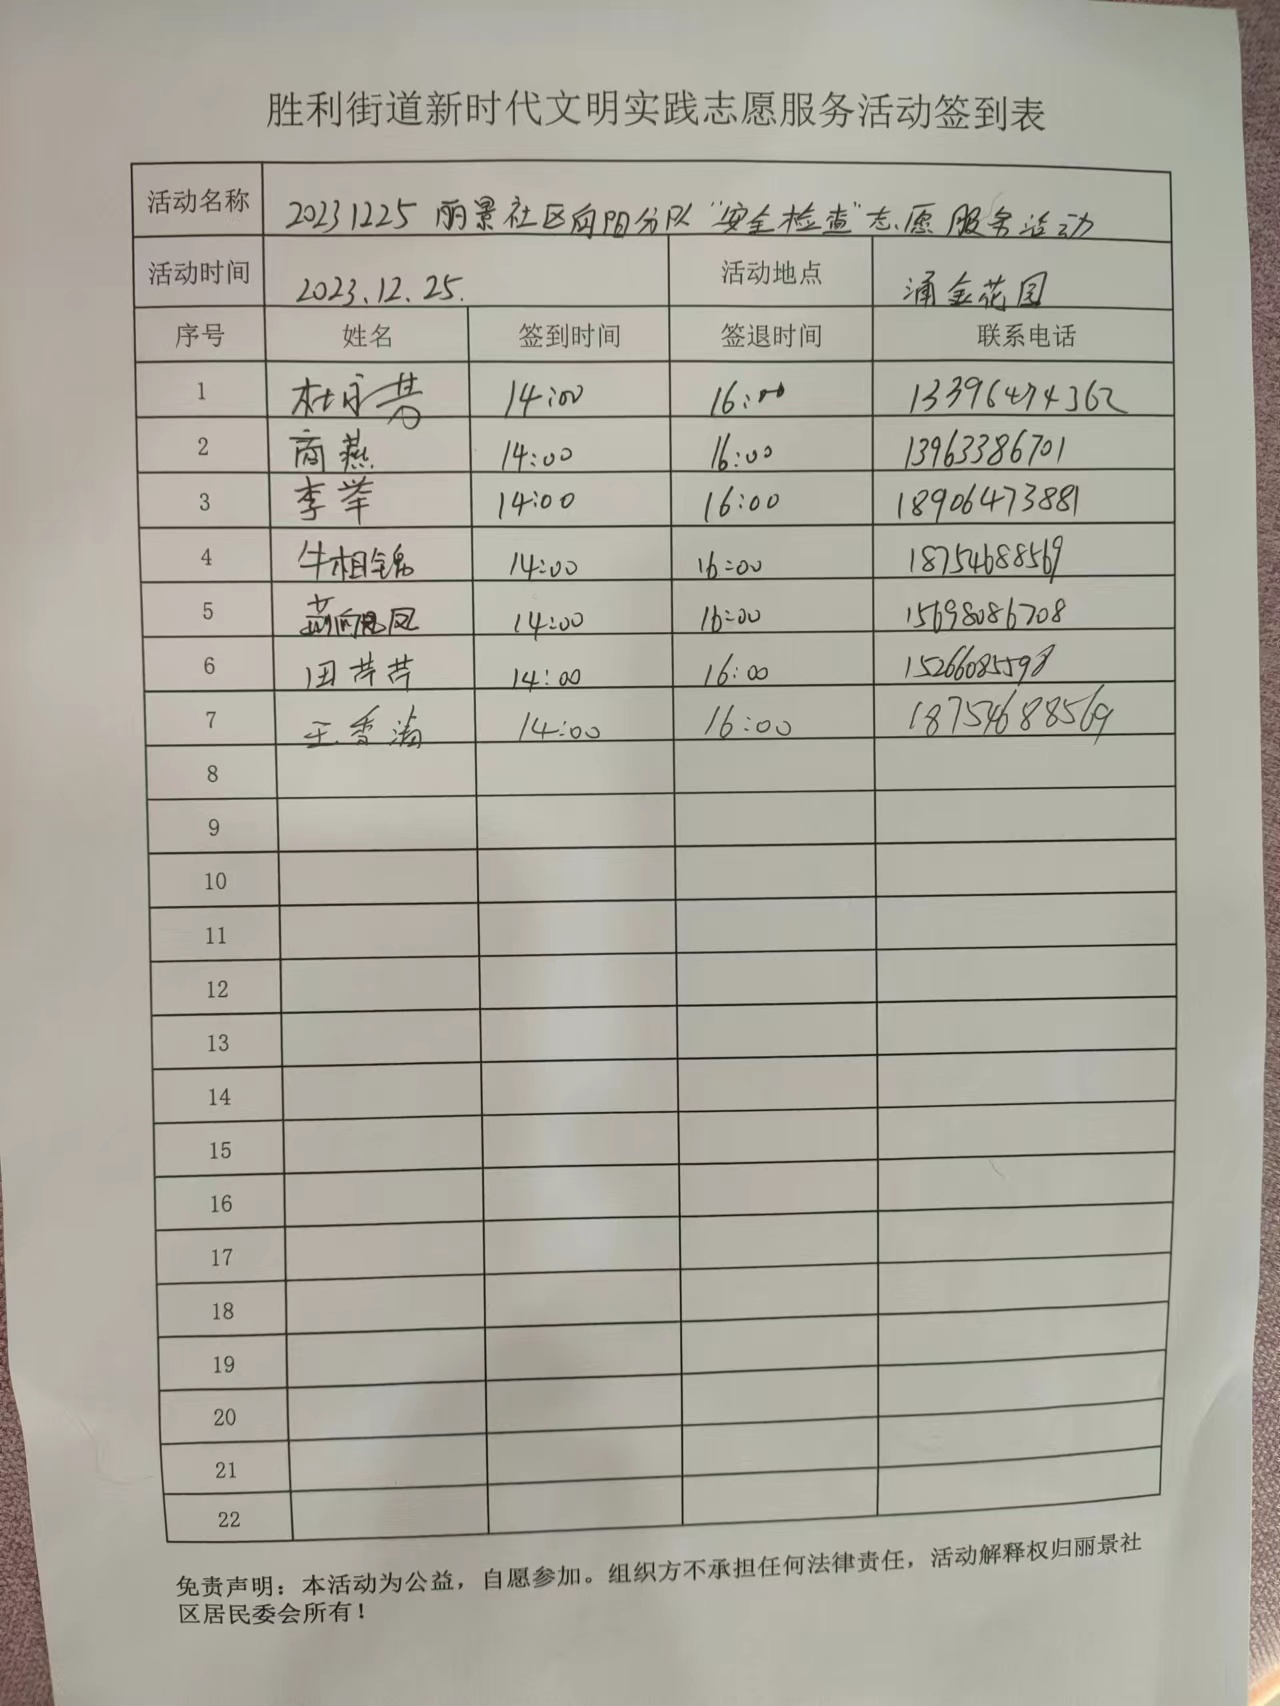 胜利街道新时代文明实践志愿服务活动签到表
活动名称 20231225 丽景社区向阳分队“安全检查”志愿服务活动
活动时间 2023.12.25. 活动地点 涌金花园
序号 姓名 签到时间 签退时间 联系电话
1 杜 14:00 16:00 13396474362
2 商燕 14:00 16:00 13963386701
3 李举 14:00 16:00 18906473881
4 牛相锦 14:00 16:00 18754688569
5 14:00 16:00 15698086708
6 田芹芹 14:00 16:00 15266085598
7 王香 14:00 16:00 18754688569
8
9
10
11
12
13
14
15
16
17
18
19
20
21
22
免责声明：本活动为公益，自愿参加。组织方不承担任何法律责任，活动解释权归丽景社
区居民委会所有！